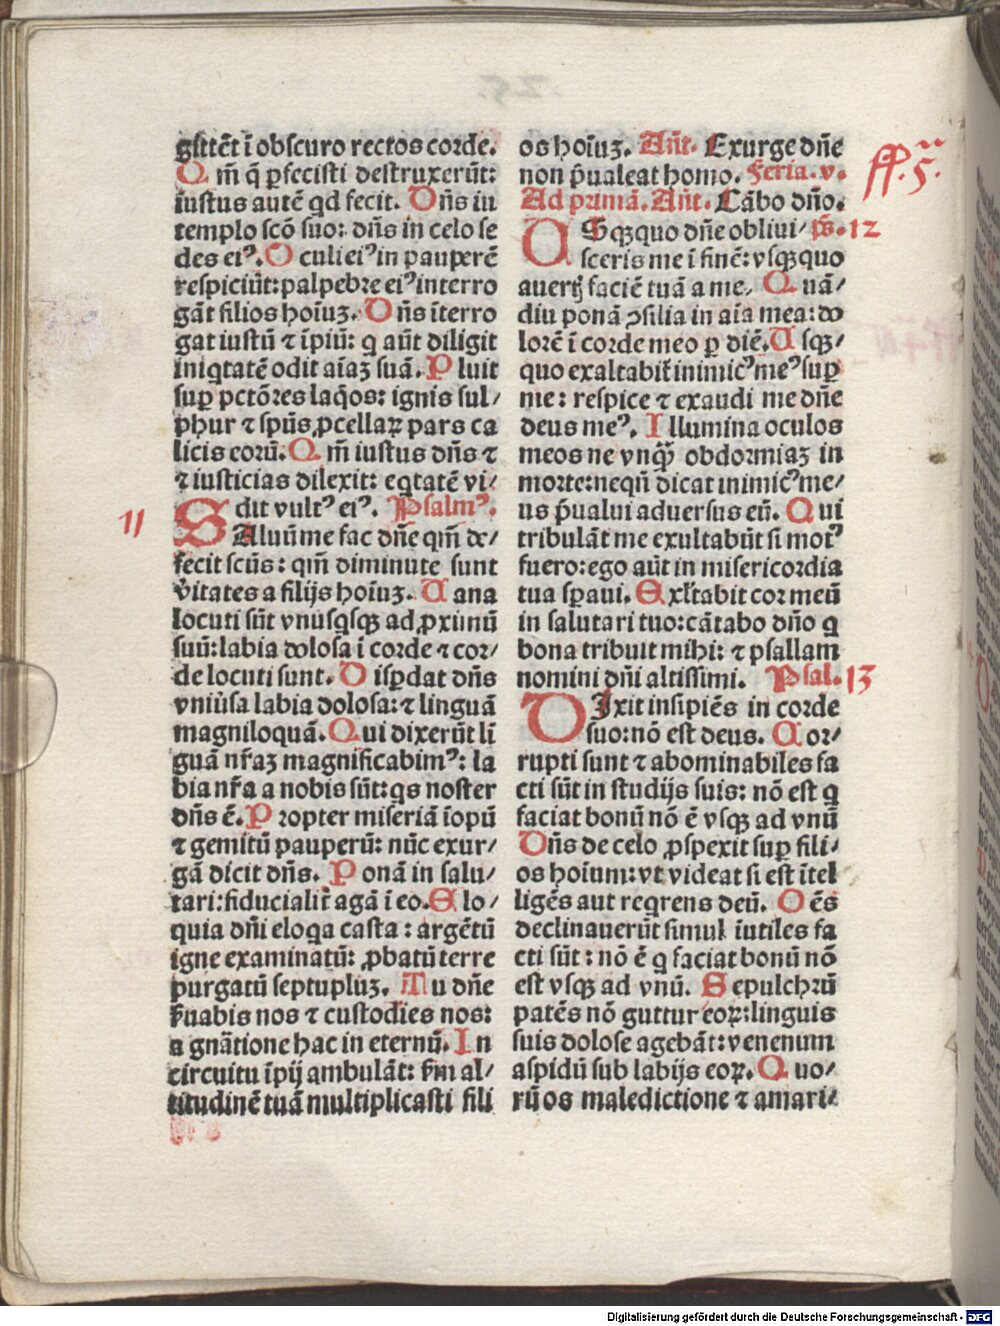 gittēt ī obscuro rectos corde.
Qm̄ q̄ ꝑfecisti destruxerūt:
iustus autē qd fecit. Dn̄s in
templo scō suo: dn̄s in celo se
des eiꝰ. Oculi eiꝰ in pauperē
respiciūt: palpebre eiꝰ interro
gāt filios hoīuꝫ. Dn̄s īterro
gat iustū ⁊ īpiū: q aūt diligit
iniqtatē odit aīaꝫ suā. Pluit
suꝑ pctōres laq̄os: ignis sul/
phur ⁊ spūs ꝓcellaꝝ pars ca
licis eorū. Qm̄ iustus dn̄s ⁊
⁊ iusticias dilexit: eqtatē vi/
dit vultꝰ eiꝰ. Psalmꝰ.
11 SAluū me fac dn̄e qm̄ de/
fecit scūs: qm̄ diminute sunt
v̄itates a filijs hoīuꝫ. Uana
locuti sūt vnusqsqꝫ ad ꝓximū
suū: labia dolosa ī corde ⁊ cor/
de locuti sunt. Disꝑdat dn̄s
vniv̄sa labia dolosa: ⁊ linguā
magniloquā. Qui dixerūt lī
guā nr̄aꝫ magnificabimꝰ: la
bia nr̄a a nobis sūt: qs noster
dn̄s ē. Propter miseriā īopū
⁊ gemitū pauperū: nūc exur/
gā dicit dn̄s. Ponā in salu/
tari: fiducialit̄ agā ī eo. Elo/
quia dn̄i eloqa casta: argētū
igne examinatū: ꝓbatū terre
purgatū septupluꝫ. Tu dn̄e
ẜuabis nos ⁊ custodies nos:
a gn̄atione hac in eternū. In
circuitu īpij ambulāt: ẜm al/
titudinē tuā multiplicasti fili
os hoīuꝫ. Añt. Exurge dn̄e
non p̄ualeat homo. Feria. v.
Ad primā. Añt. Cābo dn̄o.
USqꝫquo dn̄e obliui/ ps. 12
sceris me ī finē: vsqꝫquo
auertꝭ faciē tuā a me. Quā/
diu ponā ꝯsilia in aīa mea: do
lorē ī corde meo ꝑ diē. Usqꝫ/
quo exaltabit̄ inimicꝰ meꝰ suꝑ
me: respice ⁊ exaudi me dn̄e
deus meꝰ. Illumina oculos
meos ne vnqꝫ̄ obdormiaꝫ in
morte: neqn̄ dicat inimicꝰ me/
us p̄ualui aduersus eū. Qui
tribulāt me exultabūt si motꝰ
fuero: ego aūt in misericordia
tua sꝑaui. Exl̄tabit cor meū
in salutari tuo: cātabo dn̄o q
bona tribuit mihi: ⁊ psallam
nomini dn̄i altissimi. Psal. 13
DIxit insipiēs in corde
suo: nō est deus. Cor/
rupti sunt ⁊ abominabiles fa
cti sūt in studijs suis: nō est q
faciat bonū nō ē vsqꝫ ad vnū
Dn̄s de celo ꝓspexit suꝑ fili/
os hoium: vt videat si est ītel
ligēs aut reqrens deū. Oēs
declinauerūt simul īutiles fa
cti sūt: nō ē q faciat bonū nō
est vsqꝫ ad vnū. Sepulchrū
patēs nō guttur eoꝝ: linguis
suis dolose agebāt: venenum
aspidū sub labijs eoꝝ. Quo/
rū os maledictione ⁊ amari/
Digitalisierung gefördert durch die Deutsche Forschungsgemeinschaft - DFG